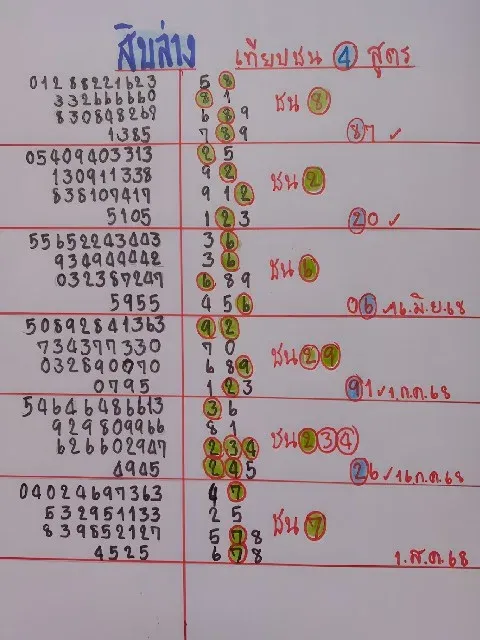 สิบล่าง เทียบชน 4 สูตร
01288221623 5 8
332666660 8 1 ชน 8
830848269 6 8 9
1385 7 8 9 87 ✓
05409403313 2 5
130911338 9 2 ชน 2
838107417 9 1 2
5105 1 2 3 20 ✓
55652243443 3 6
934944442 3 6 ชน 6
032387247 6 8 9
5955 4 5 6 06 ✓ 16.มิ.ย.68
50892841363 9 2
734377330 7 0 ชน 2 9
032890070 6 8 9
0795 1 2 3 91 ✓ 1.ก.ค.68
54646486613 3 6
929809966 8 1 ชน 2 3 4
626602947 2 3 4
4945 2 4 5 26 ✓ 16ก.ค.68
04024697363 4 7
532951133 2 5 ชน 7
839852127 5 7 8
4525 6 7 8 1.ส.ค.68